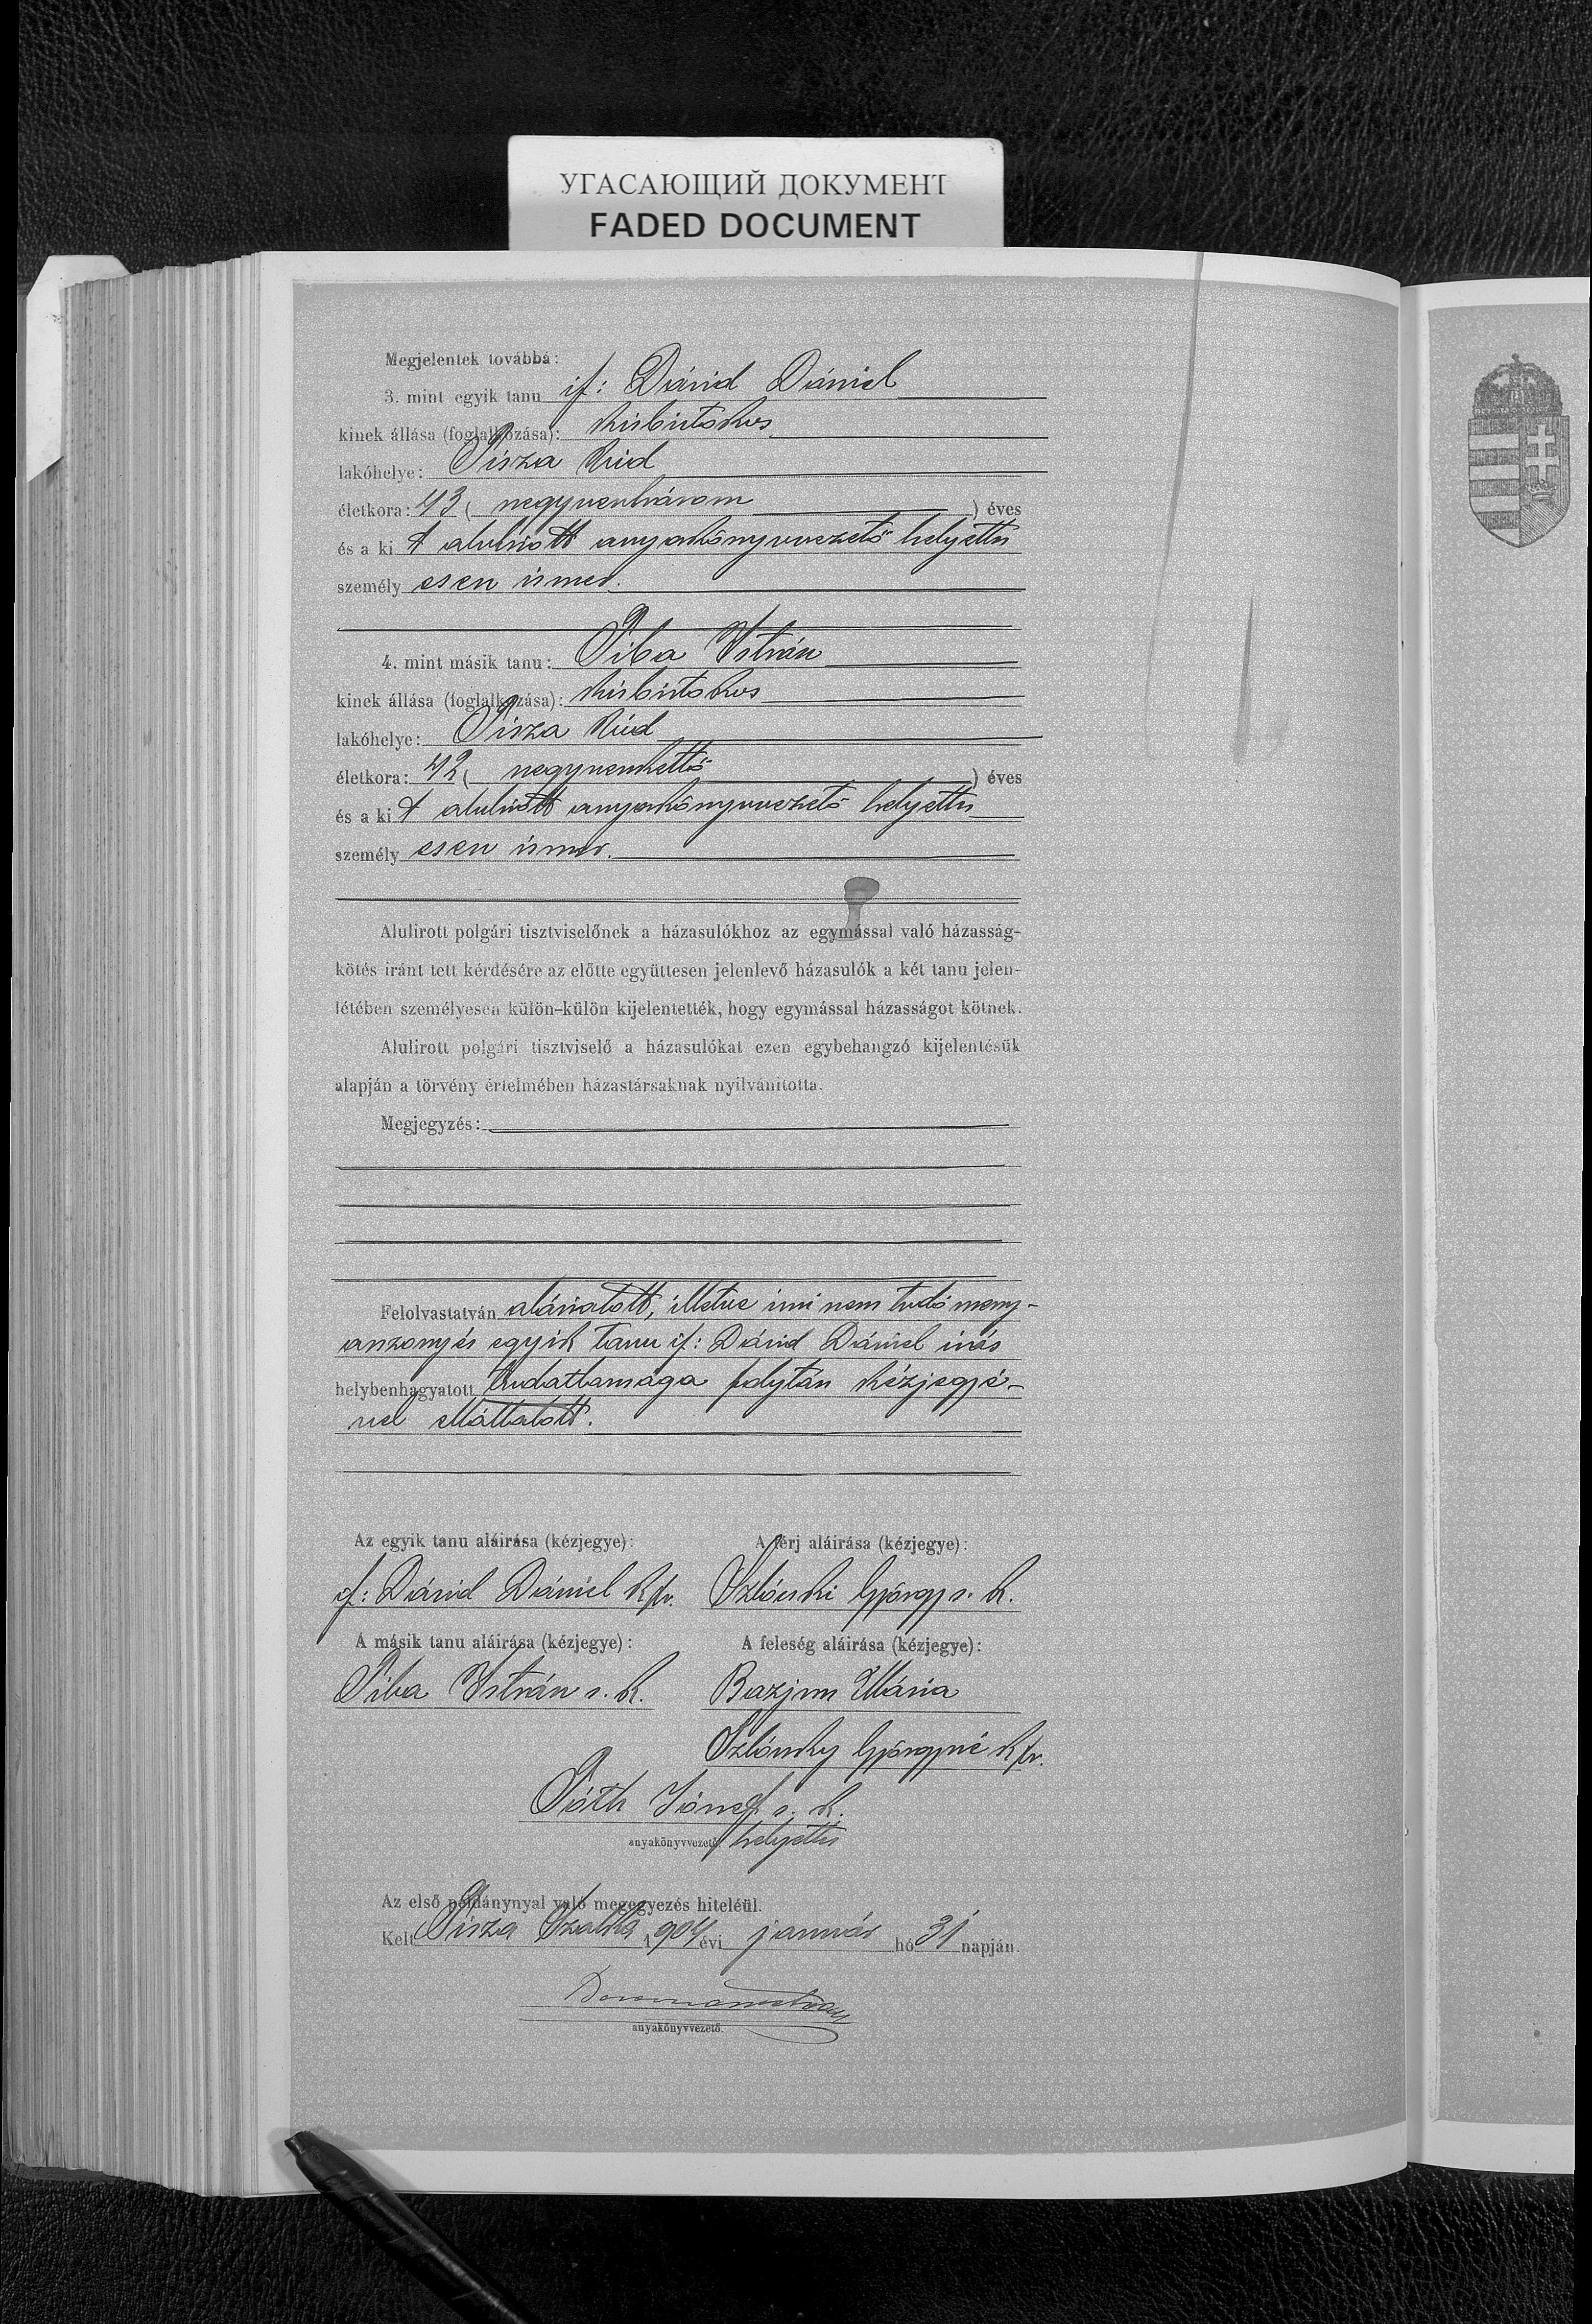 УГАСАЮЩИЙ ДОКУМЕНТ
FADED DOCUMENT
Megjelentek továbbá:
3. mint egyik tanu if: Dávid Dániel
kinek állása (foglalkozása): kisbirtokos
lakóhelye: Tisza Küd
életkora: 43 ( negyvenhárom ) éves
és a ki t alulirott anyakönyvvezető helyettes
személy esen ismer.
4. mint másik tanu: Tiba István
kinek állása (foglalkozása): kisbirtokos
lakóhelye: Tisza Küd
életkora: 42 ( negyvenkettő ) éves
és a ki t alulirott anyakönyvvezető helyettes
személy esen ismer.
Alulirott polgári tisztviselőnek a házasulókhoz az egymással való házasság-
kötés iránt tett kérdésére az előtte együttesen jelenlevő házasulók a két tanu jelen-
létében személyesen külön-külön kijelentették, hogy egymással házasságot kötnek.
Alulirott polgári tisztviselő a házasulókat ezen egybehangzó kijelentésük
alapján a törvény értelmében házastársaknak nyilvánitotta.
Megjegyzés:
Felolvastatván aláiratott, illetve irni nem tudó meny-
asszony és egyik tanu if: Dávid Dániel irás
helybenhagyatott tudatlansága folytán kézjegyé-
vel elláttatott.
Az egyik tanu aláirása (kézjegye):
A férj aláirása (kézjegye):
if: Dávid Dániel k/v.
György s. k.
A másik tanu aláirása (kézjegye):
A feleség aláirása (kézjegye):
Tiba István s. k.
Mária
Györgyné k/v.
Tóth József s. k.
anyakönyvvezető helyettes
Az első példánynyal való megegyezés hiteléül.
Kelt Tisza Szalka 1904 évi január hó 31 napján.
anyakönyvvezető.